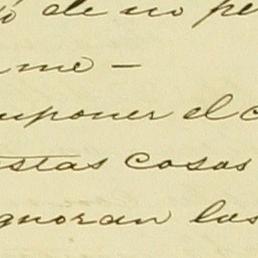 ó de no pe
me —
uponer el c
stas cosas
gnoran los